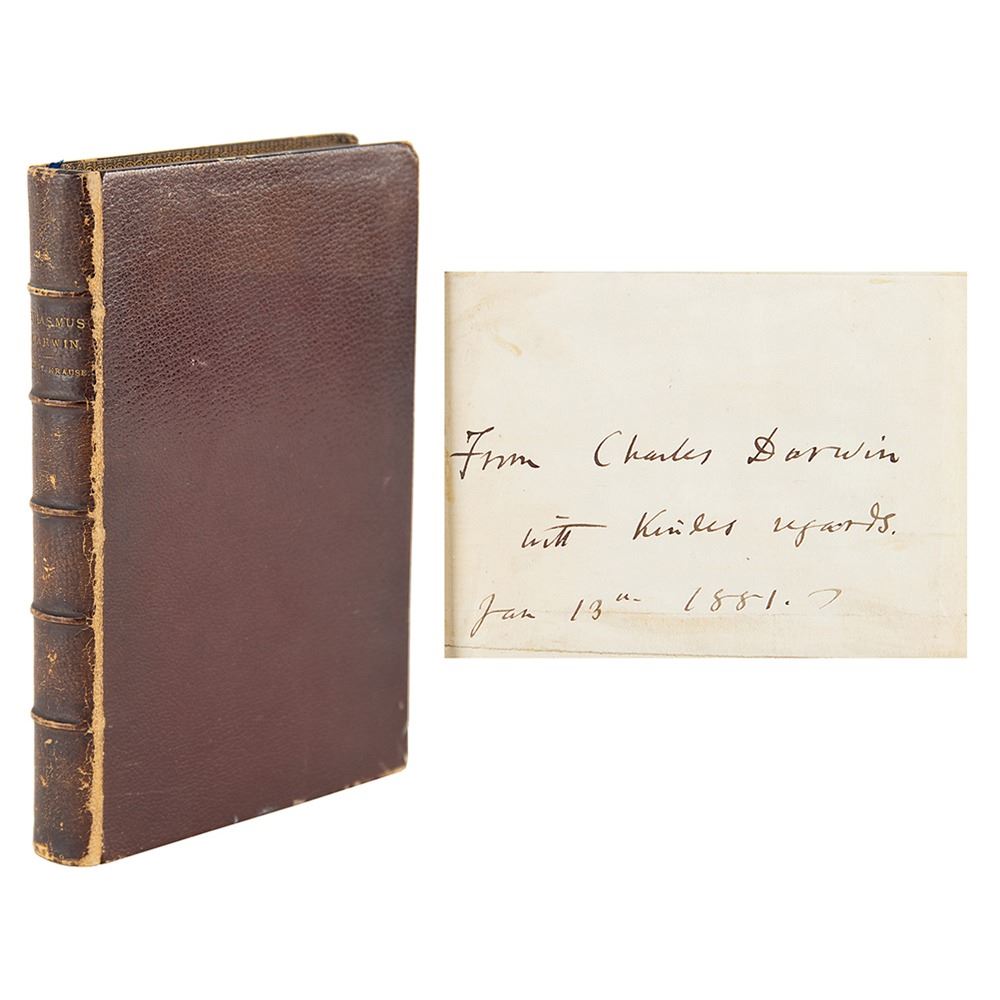 RASMUS
DARWIN.
KRAUSE.
From Charles Darwin
with kindest regards.
Jan 13th 1881.